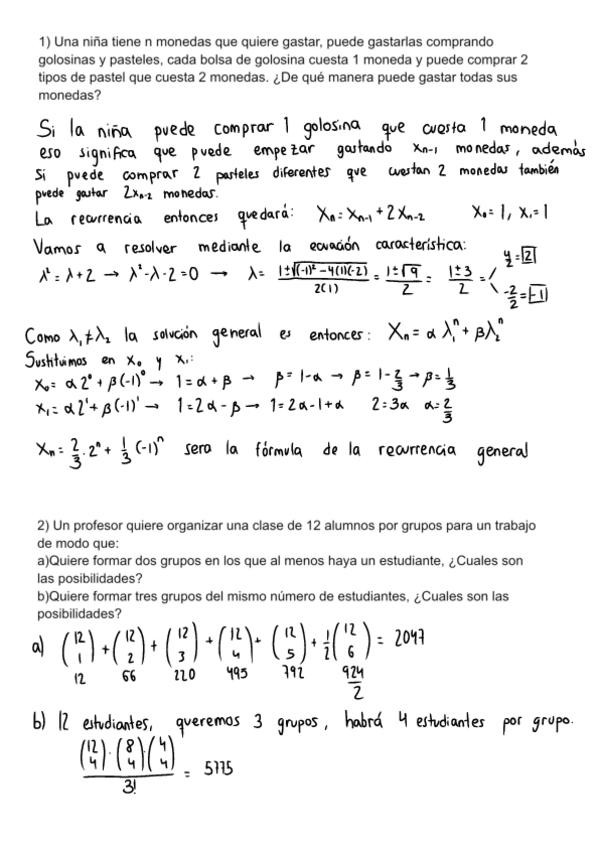 1) Una niña tiene n monedas que quiere gastar, puede gastarlas comprando
golosinas y pasteles, cada bolsa de golosina cuesta 1 moneda y puede comprar 2
tipos de pastel que cuesta 2 monedas. ¿De qué manera puede gastar todas sus
monedas?
Si la niña puede comprar 1 golosina que cuesta 1 moneda
eso significa que puede empezar gastando xₙ₋₁ monedas, además
si puede comprar 2 pasteles diferentes que cuestan 2 monedas también
puede gastar 2xₙ₋₂ monedas.
La recurrencia entonces quedará: Xₙ = Xₙ₋₁ + 2Xₙ₋₂ X₀ = 1, X₁ = 1
Vamos a resolver mediante la ecuación característica:
λ² = λ + 2 → λ² - λ - 2 = 0 → λ = (1 ± √((-1)² - 4(1)(-2))) / 2(1) = (1 ± √9) / 2 = (1 ± 3) / 2 = 4/2 = 2, -2/2 = -1
Como λ₁ ≠ λ₂ la solución general es entonces: Xₙ = α λ₁ⁿ + βλ₂ⁿ
Sustituimos en x₀ y x₁:
x₀ = α 2⁰ + β(-1)⁰ → 1 = α + β → β = 1 - α → β = 1 - 2/3 → β = 1/3
x₁ = α 2¹ + β(-1)¹ → 1 = 2α - β → 1 = 2α - 1 + α 2 = 3α α = 2/3
Xₙ = 2/3 · 2ⁿ + 1/3 (-1)ⁿ sera la fórmula de la recurrencia general
2) Un profesor quiere organizar una clase de 12 alumnos por grupos para un trabajo
de modo que:
a)Quiere formar dos grupos en los que al menos haya un estudiante, ¿Cuales son
las posibilidades?
b)Quiere formar tres grupos del mismo número de estudiantes, ¿Cuales son las
posibilidades?
a) (12 1) + (12 2) + (12 3) + (12 4) + (12 5) + 1/2 (12 6) = 2047
12 66 220 495 792 924/2
b) 12 estudiantes, queremos 3 grupos, habrá 4 estudiantes por grupo.
(12 4) · (8 4) (4 4) / 3! = 5775